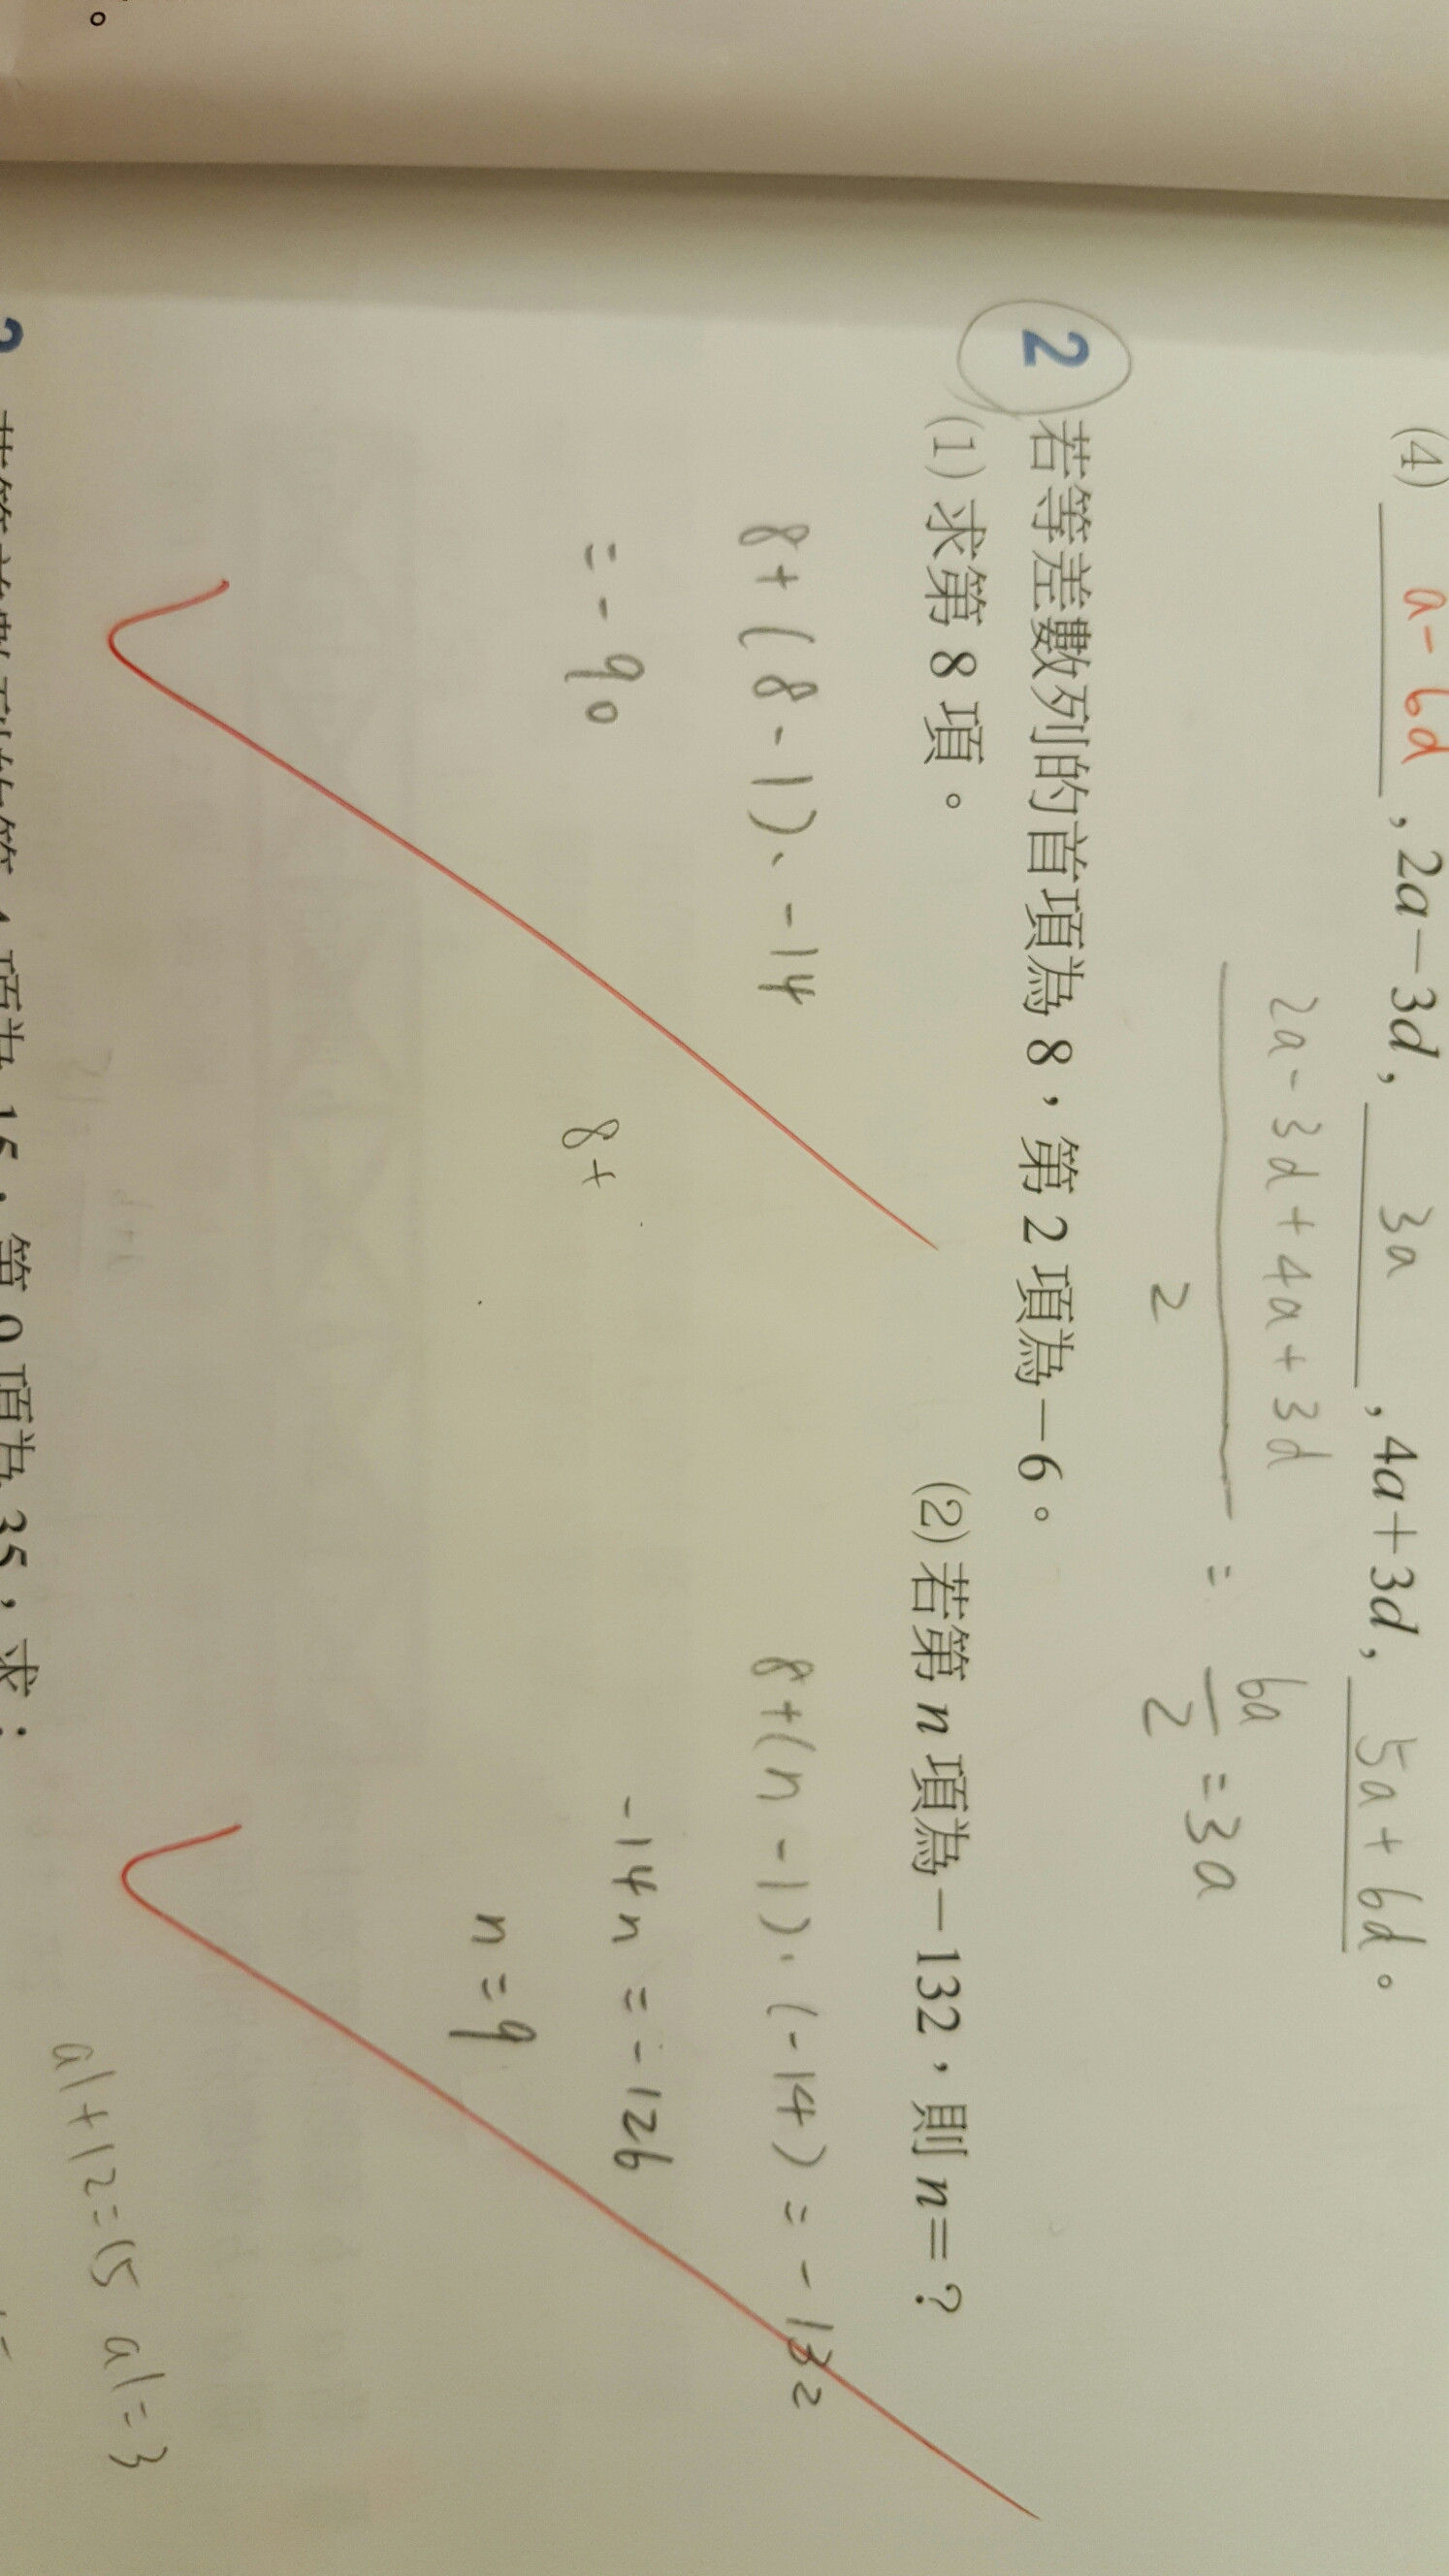 (4) a-6d , 2a-3d, 3a , 4a+3d, 5a+6d 。
2a-3d+4a+3d
2
= 6a/2 = 3a
2 若等差數列的首項為 8，第 2 項為-6。
(1) 求第 8 項。
8+(8-1)、-14
=-90
8+
(2) 若第 n 項為-132，則 n=？
8+(n-1)·(-14)=-132
-14n=-126
n=9
a1+12=15 a1=3
項為 15，第 9 項為 35，求：